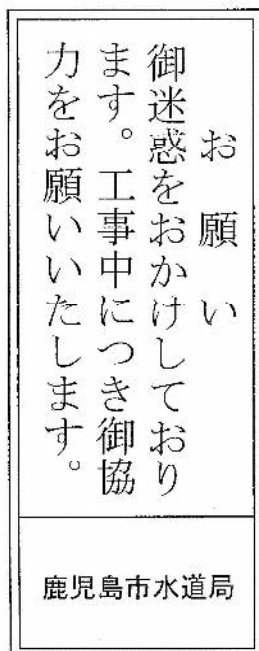 お願い
御迷惑をおかけしており
ます。工事中につき御協
力をお願いいたします。
鹿児島市水道局